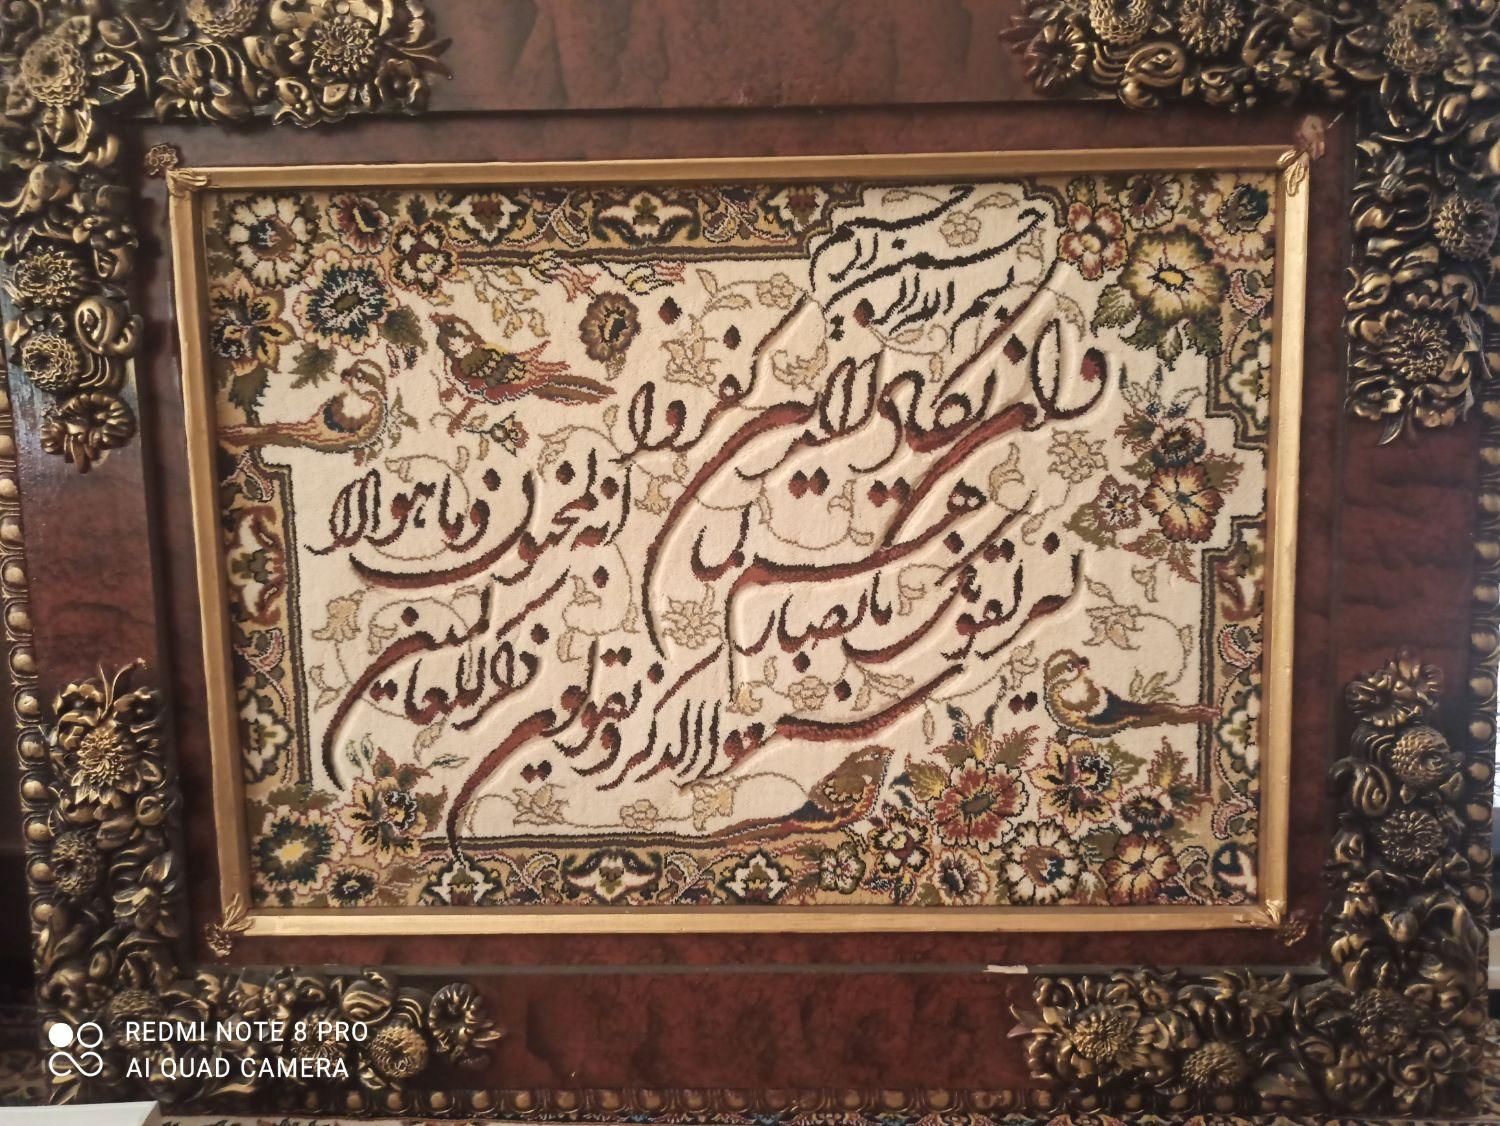 بسم الله الرحمن الرحیم
وان یکاد الذین کفروا
لیزلقونک بابصارهم لما
سمعوا الذکر و یقولون
انه لمجنون و ما هو الا
ذکر للعالمین
REDMI NOTE 8 PRO
AI QUAD CAMERA